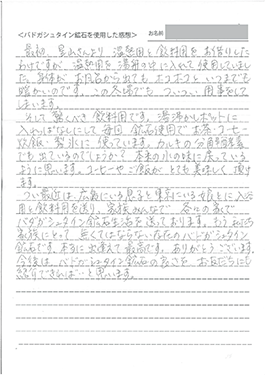 ＜バドガシュタイン鉱石を使用した感想＞
お名前
最初、 さんより、温熱用と飲料用をお借りした
わけですが、温熱用を湯舟の中に入れて使用していまし
た。身体が、お風呂から出てもポコポコといつまでも
暖かいのです。この冬場でも、ついつい、用事をして
しまいます。
そして驚くべき飲料用です。湯沸かしポットに
入ればなしにして毎回、鉱石使用でお茶・コーヒー
炊飯・製氷に使っています。カルキの分解等作用
でも出ているのでしょうか？本来の水の味に戻っている
ように思います。コーヒーやご飯がとても美味しく頂け
ます。
つい最近は、広島にいる息子と東京にいる娘とに入浴
用と飲料用を送り、家族みんなで各々の家で
バドガシュタイン鉱石生活を送っております。もう私の
家族にとって無くてはならない存在のバドガシュタイン
鉱石です。本当に出逢えて最高です。ありがとうございます
今後は、バドガシュタイン鉱石の良さをお友だちにも
紹介できれば…と思います。